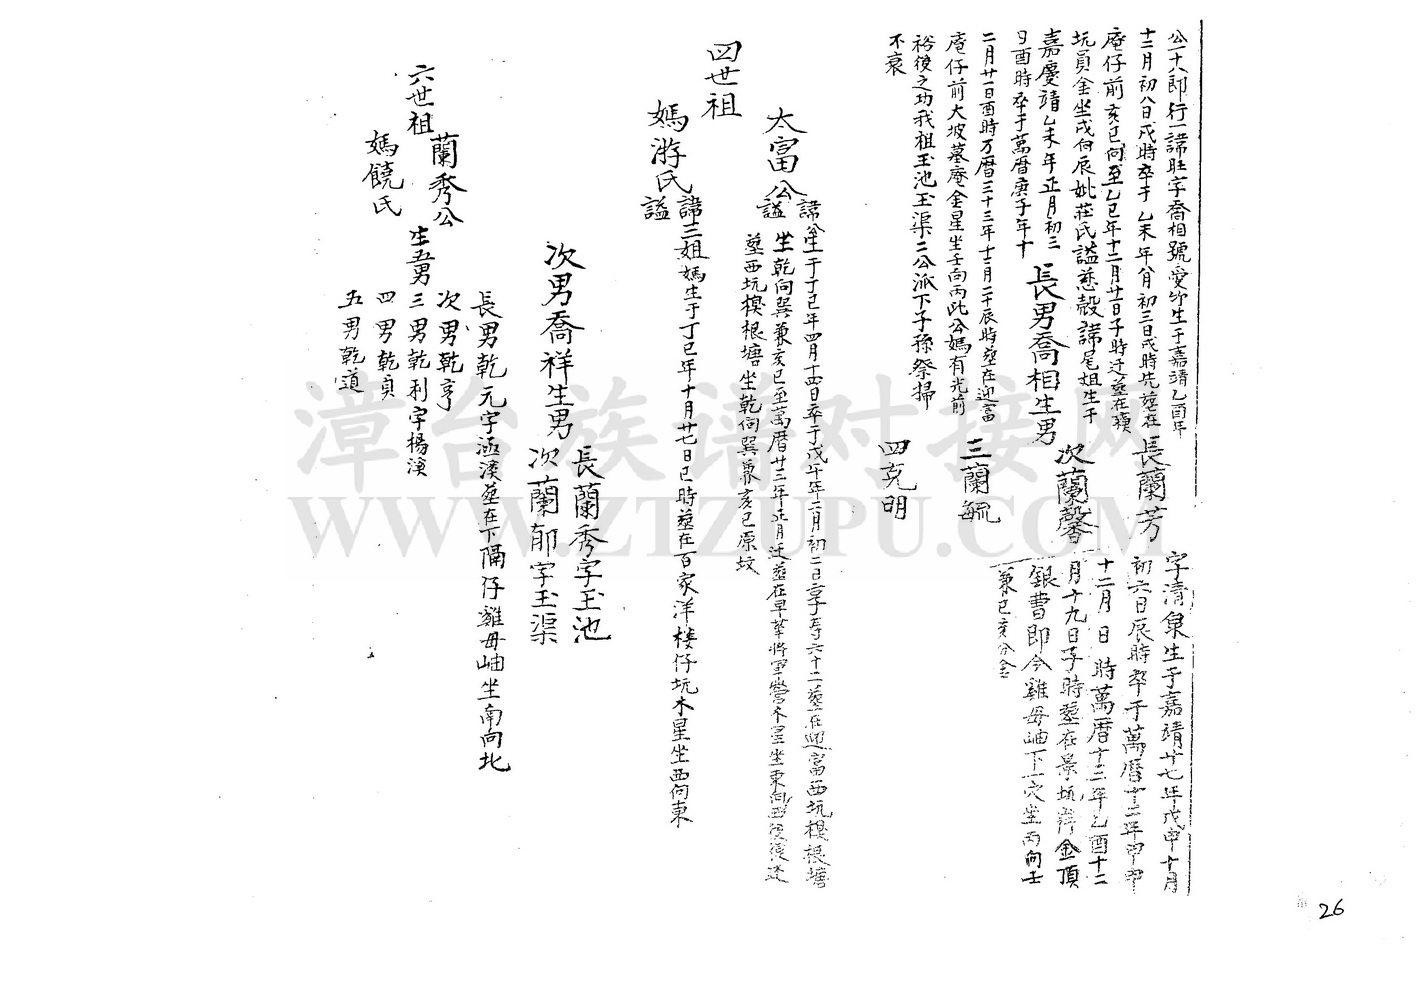 公十八郎行一諱旺字喬相號愛竹生于嘉靖乙酉年
十二月初八日戌時卒于乙未年八月初三日戌時先葬在
庵仔前亥巳向至乙巳年十二月廿日子時迁葬在
坑員金坐戌向辰妣莊氏謚慈諱尾姐生于
嘉慶靖乙未年正月初三
日酉時卒于萬曆庚子年十
二月廿一日酉時万曆三十三年十二月二十辰時葬在迎富
庵仔前大坡墓庵金星坐壬向丙此公媽有光前
裕後之功我祖玉池玉渠二公派下子孫祭掃
不衰
長男喬相生男
長蘭芳
次蘭馨
三蘭毓
四克明
字清泉生于嘉靖廿七年戊申十月
初六日辰時卒于萬曆十二年甲申
十二月 日 時萬曆十三年乙酉十二
月十九日子時葬在景坑金頂
銀曹即今雞母岫下一穴坐丙向壬
兼巳亥分金
四世祖
太富公
諱 謚
公生于丁巳年四月十四日卒于戊午年二月初二日享寿六十二葬在迎富西坑樸根塘
坐乾向巽兼亥巳至萬曆廿三年正月迁葬在早華將軍營木星坐東向西後復迁
葬西坑樸根塘坐乾向巽兼亥巳原坟
媽游氏
諱三姐 謚
媽生于丁巳年十月廿七日巳時葬在百家洋楼仔坑木星坐西向東
次男喬祥生男
長蘭秀字玉池
次蘭郁字玉渠
六世祖
蘭秀公
媽饒氏
生五男
長男乾元字涵溪葬在下隔仔雞母岫坐南向北
次男乾亨
三男乾利字楊溪
四男乾貞
五男乾道
26
漳台族谱对接网
WWW.ZTZUPU.COM